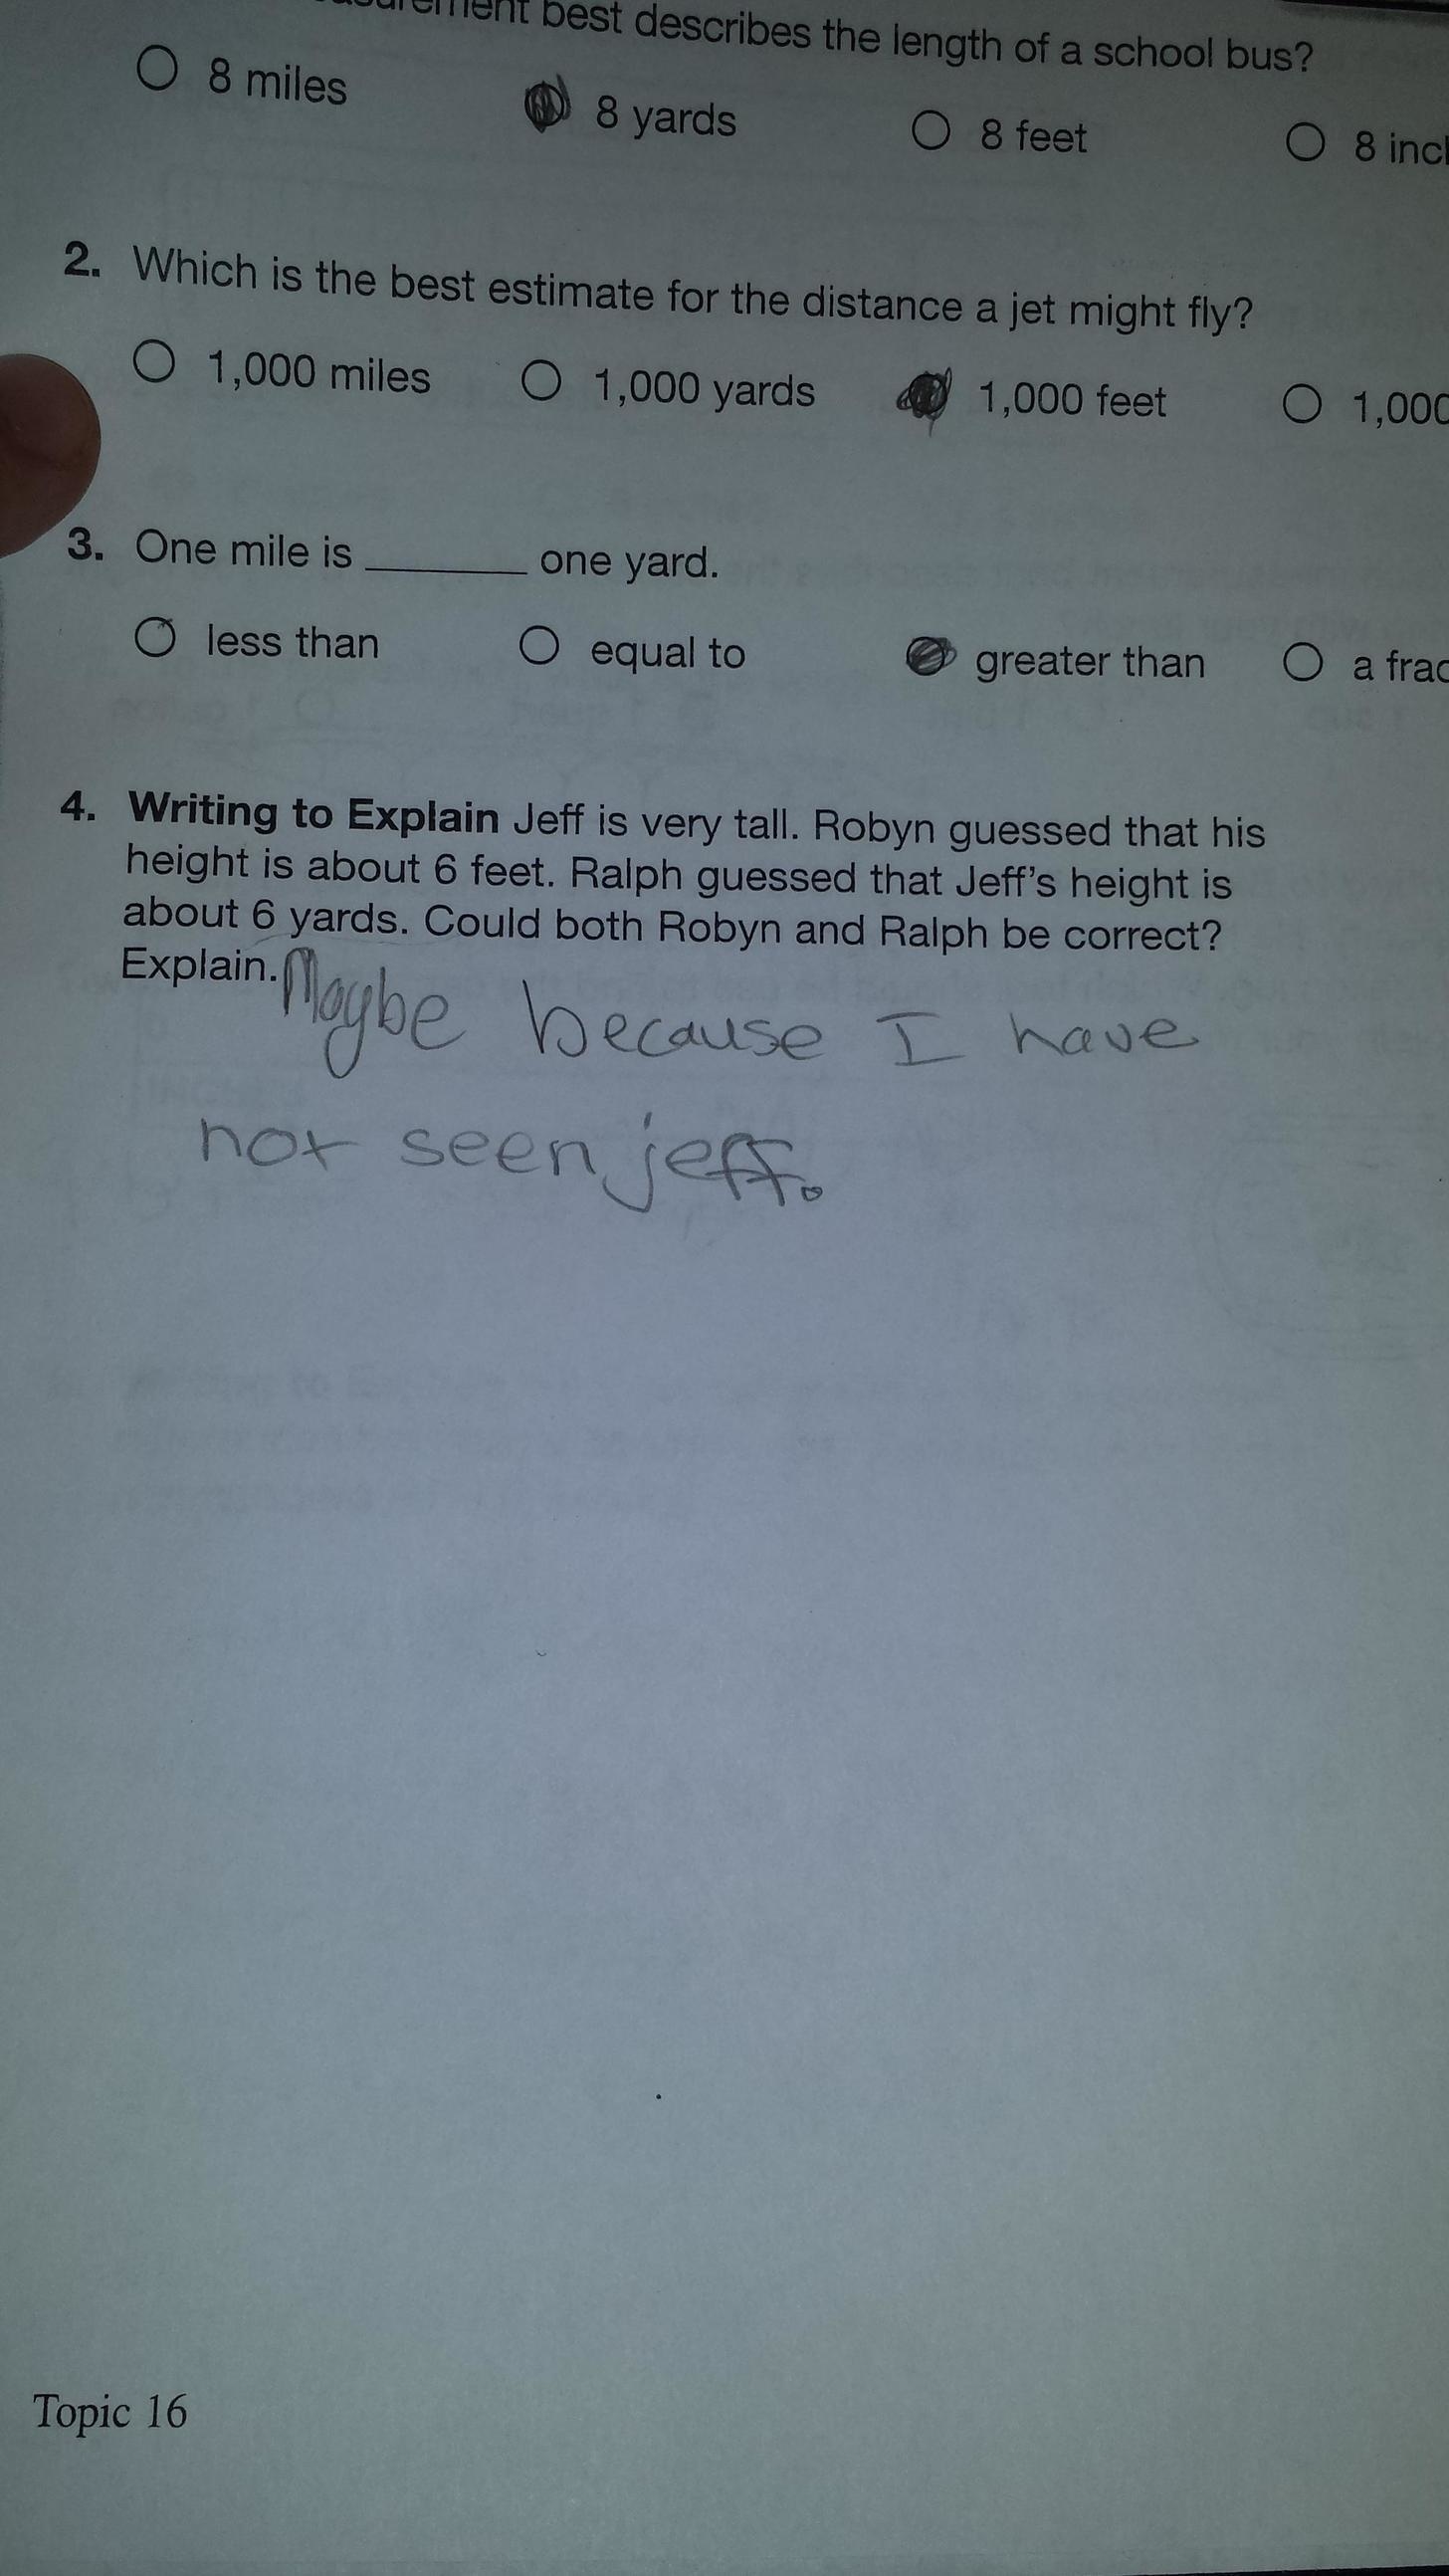 best describes the length of a school bus?
8 miles 8 yards 8 feet 8
2. Which is the best estimate for the distance a jet might fly?
1,000 miles 1,000 yards 1,000 feet
3. One mile is ______ one yard.
less than equal to greater than a
4. Writing to Explain Jeff is very tall. Robyn guessed that his
height is about 6 feet. Ralph guessed that Jeff's height is
about 6 yards. Could both Robyn and Ralph be correct?
Explain. Maybe because I have
not seen jeff.
Topic 16